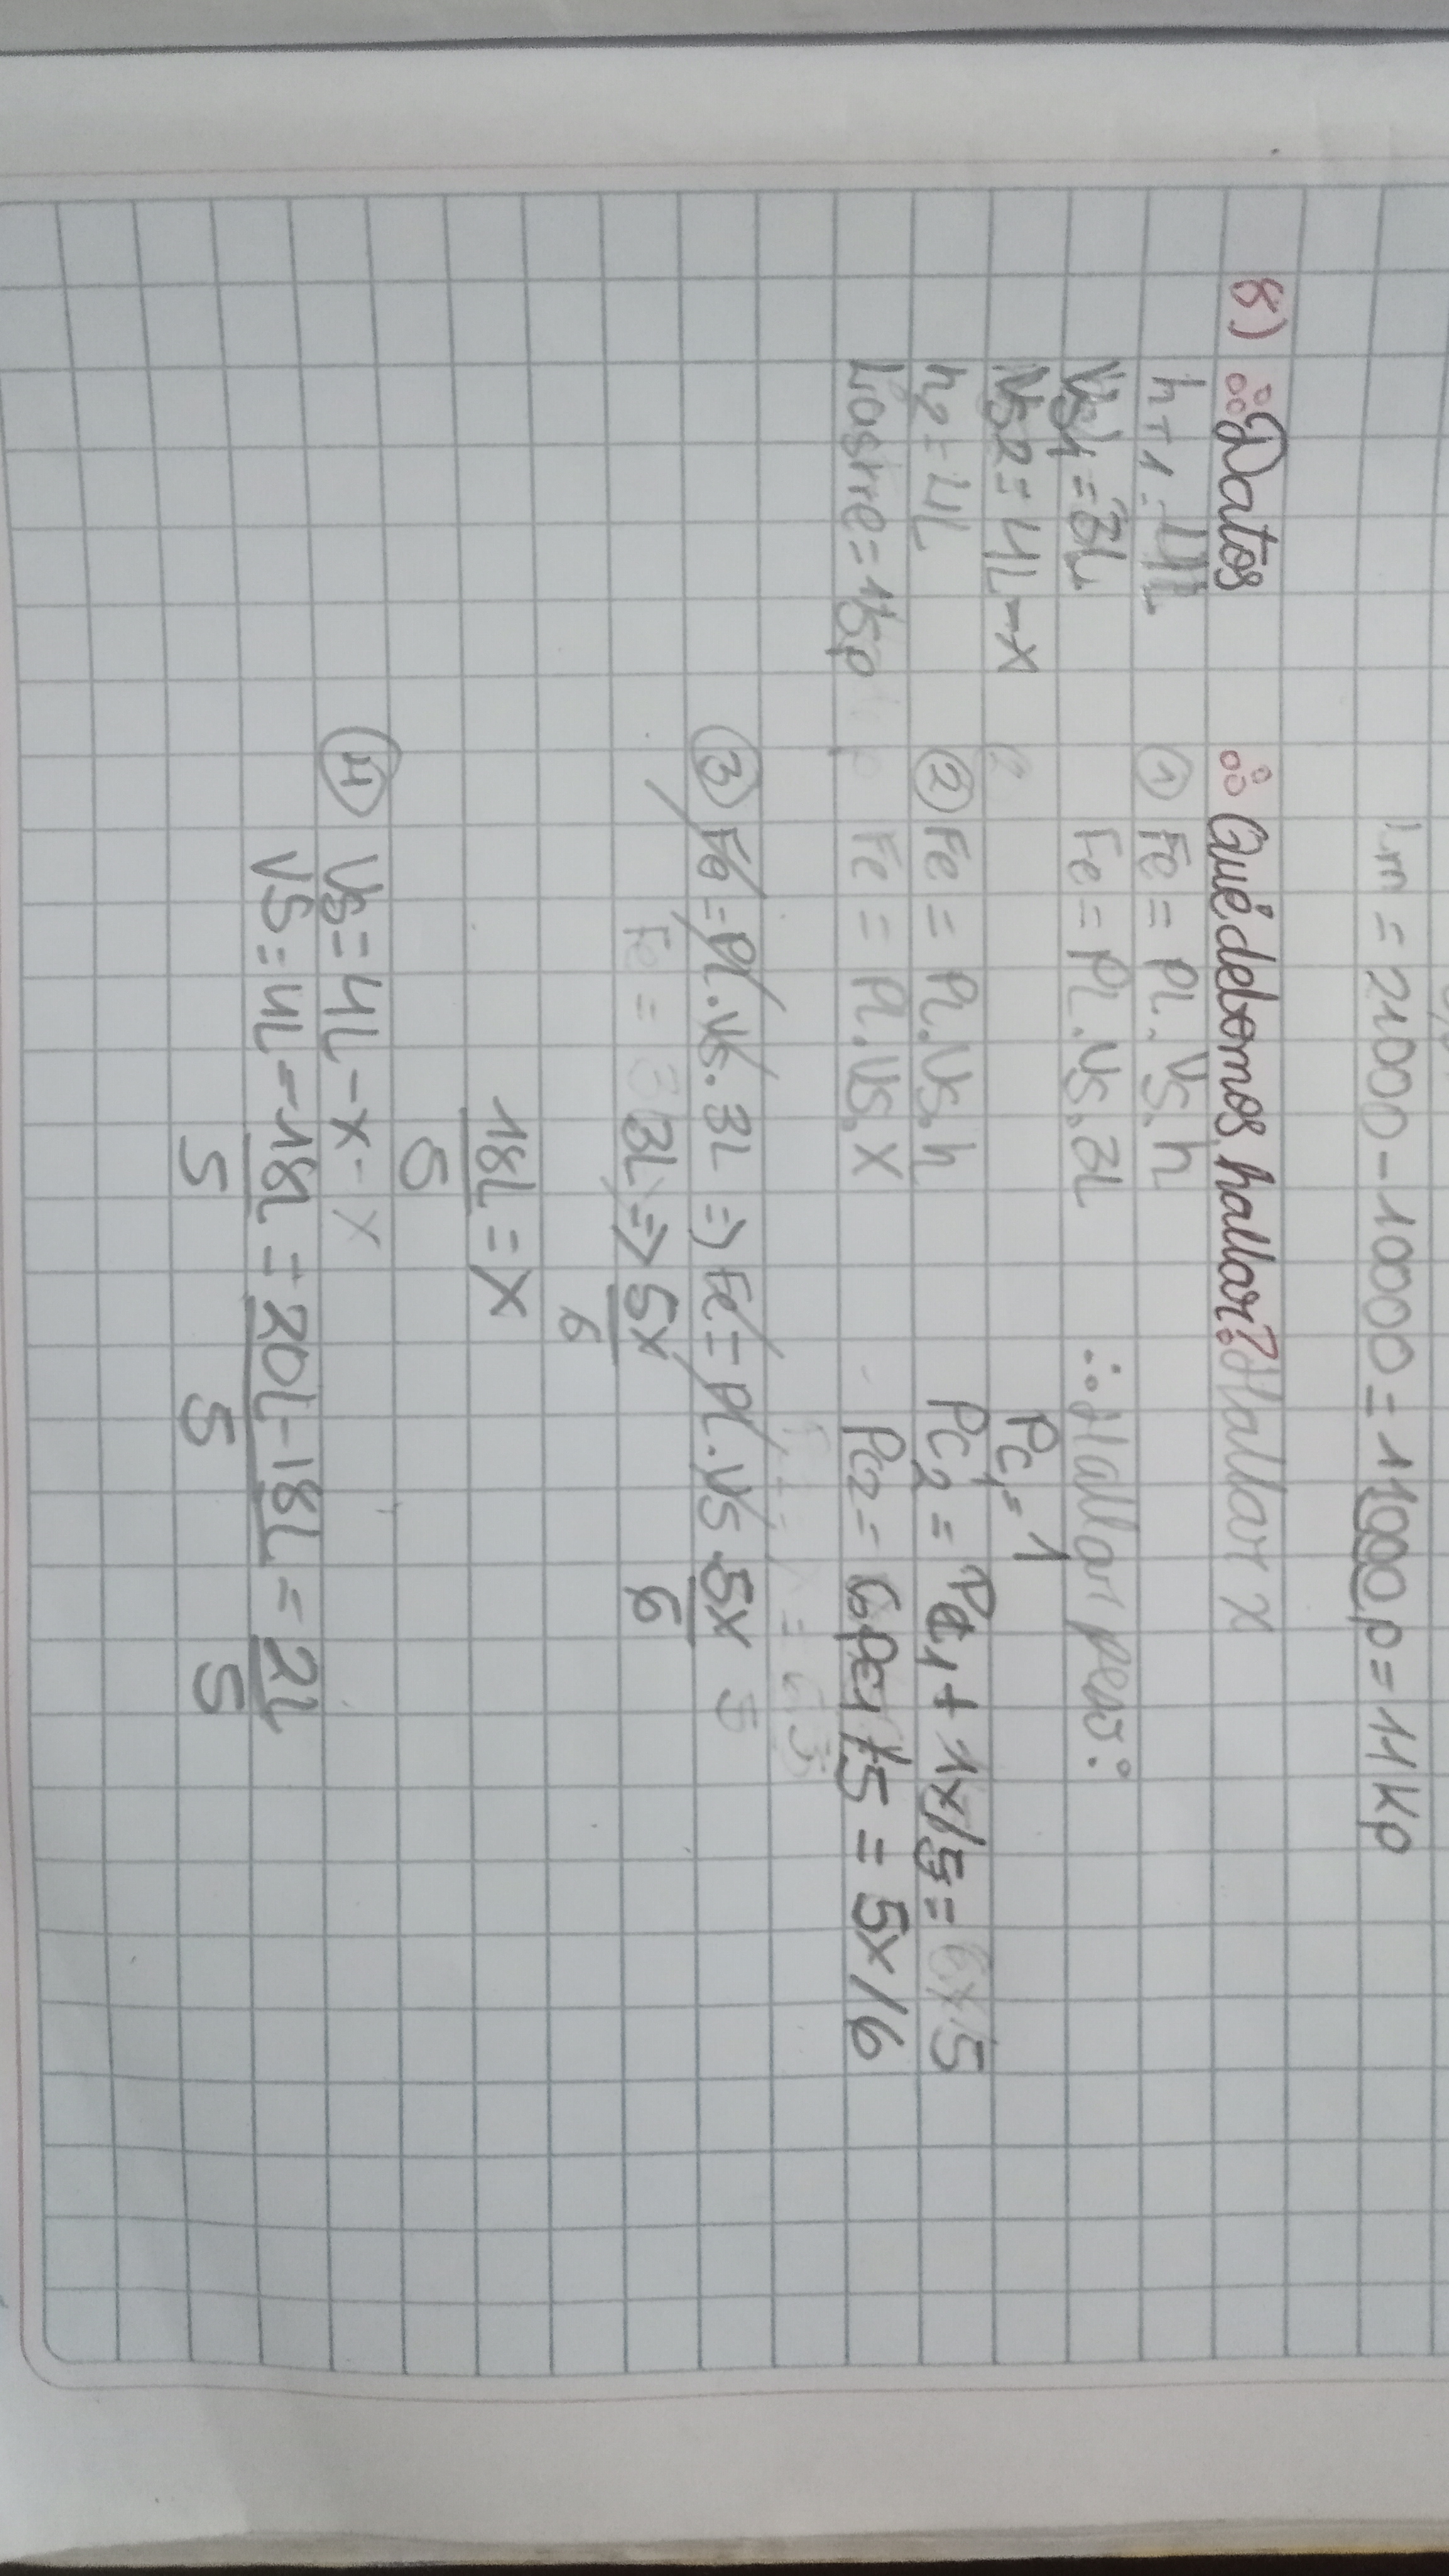 Lm = 21000 - 10000 = 11000p = 11Kp
8) Datos
h = 1 = 4L
Vs1 = 3L
Vs2 = 4L - x
h2 = 4L
Lastre = 1/5p
Qué debemos hallar? Hallar x
① Fe = PL. Vs. h
Fe = PL. Vs. 3L
② Fe = PL. Vs. h
Fe = PL. Vs. X
∴ Hallar peso:
Pc1 = 1
Pc2 = Pc1 + 1x/5 = 6x/5
Pc2 = 6Pc1/5 = 5x/6
③ Fe = PL. Vs. 3L => Fe = PL. Vs 5x/6
3L => 5x/6
18L/5 = X
④ Vs = 4L - x
Vs = 4L - 18L/5 = 20L - 18L/5 = 2L/5